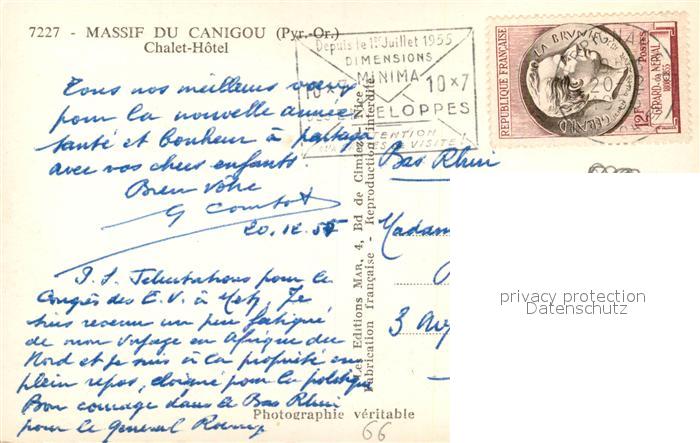 7227 - MASSIF DU CANIGOU (Pyr.-Or.)
Chalet-Hôtel
Depuis le 1er Juillet 1955
DIMENSIONS
MINIMA
10×7 10×7
ENVELOPPES
ATTENTION
CARTES DE VISITE
REPUBLIQUE FRANÇAISE
POSTES
GERARD de NERVAL
12F
Tous nos meilleurs vœux
pour la nouvelle année
santé et bonheur à partager
avec vos chers enfants.
Bien vôtre
G Combot
20.12.55
P.S. Félicitations pour le
Congrès des E.V. à Metz. Je
suis revenu un peu fatigué
de mon voyage en Afrique du
Nord et je suis à la propriété en
plein repos, éloigné pour la politique
Bon courage dans le Bas Rhin
pour le Général
Les Editions MAR, 4, Bd de Cimiez - Nice
Fabrication française - Reproduction interdite
Bas Rhin
Madam
3
Photographie véritable
66
privacy protection
Datenschutz